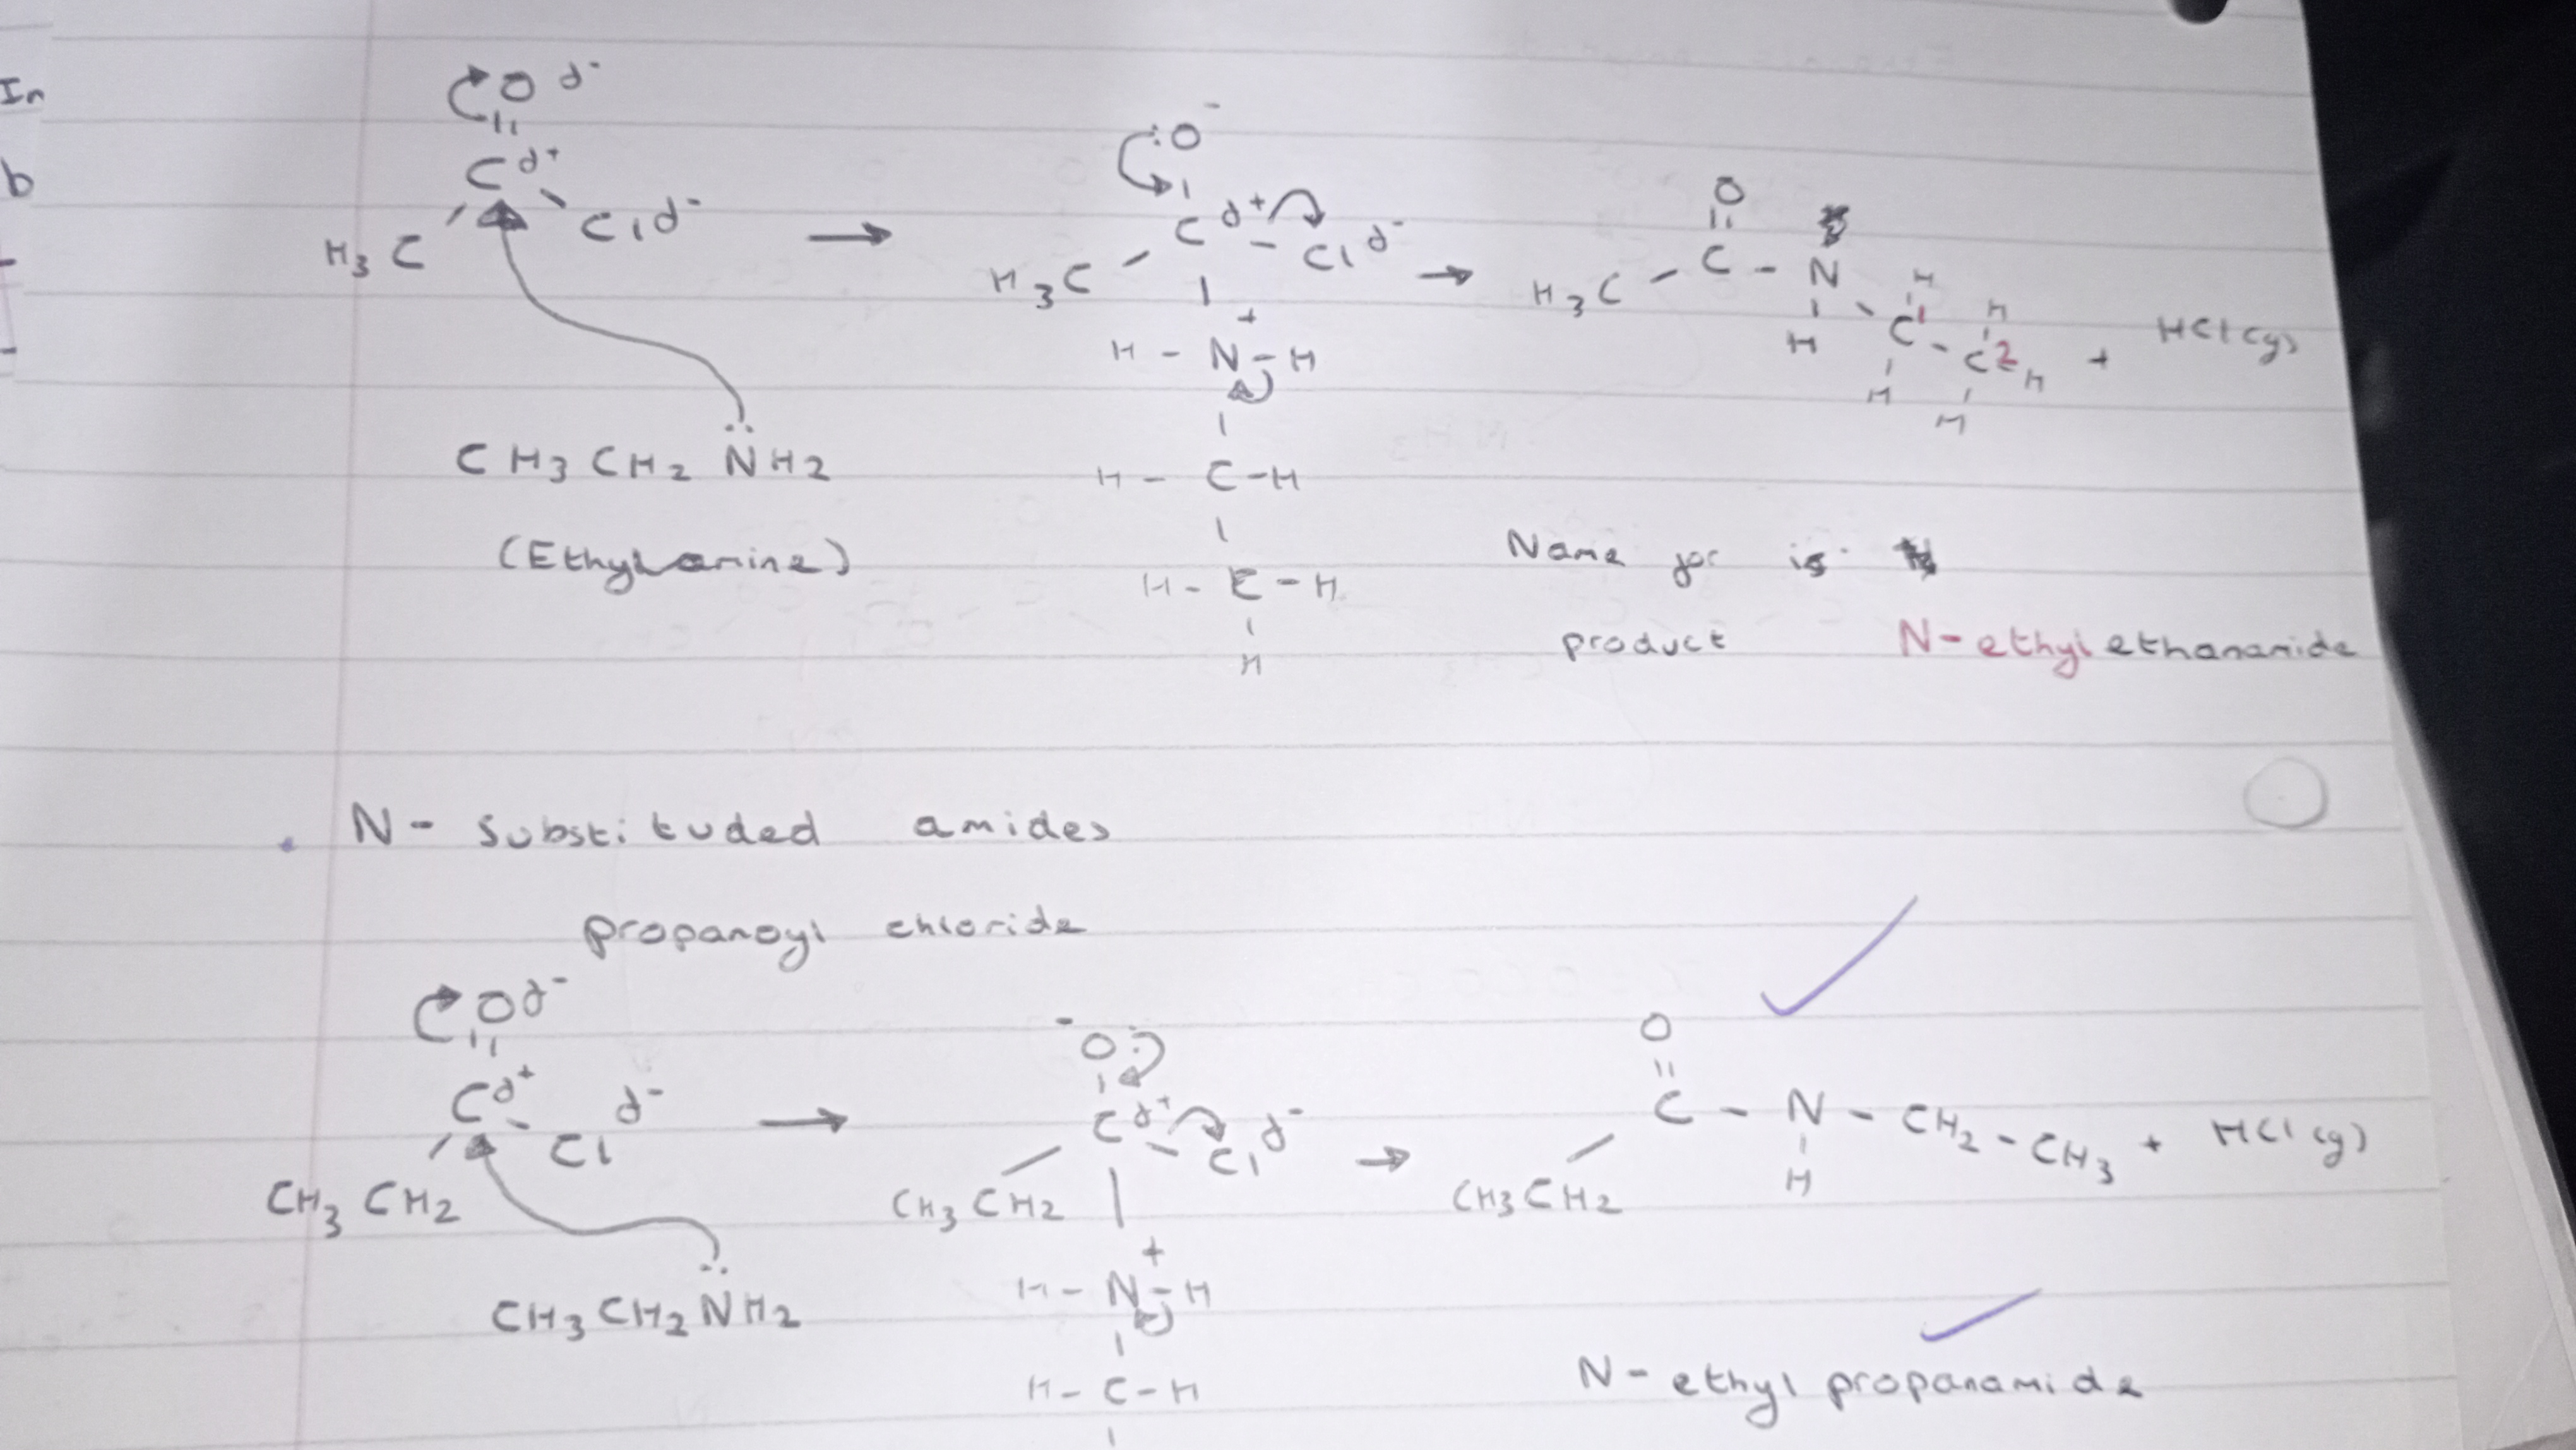 In
b
O d-
C d+
H3C Cl d-
CH3CH2NH2
(Ethylamine)
:O -
C d+ - Cl d-
H3C
+
H - N - H
H - C - H
H - C - H
H
O
H3C - C - N
H
H
C 1
H
H
C 2 H
H
+ HCl (g)
Name for is
product N-ethylethanamide
N- substituded amides
propanoyl chloride
O d-
C d+
Cl d-
CH3CH2
CH3CH2NH2
- O:
C d+ Cl d-
CH3CH2
+
H - N - H
H - C - H
O
C - N - CH2 - CH3 + HCl (g)
CH3CH2 H
N- ethyl propanamide